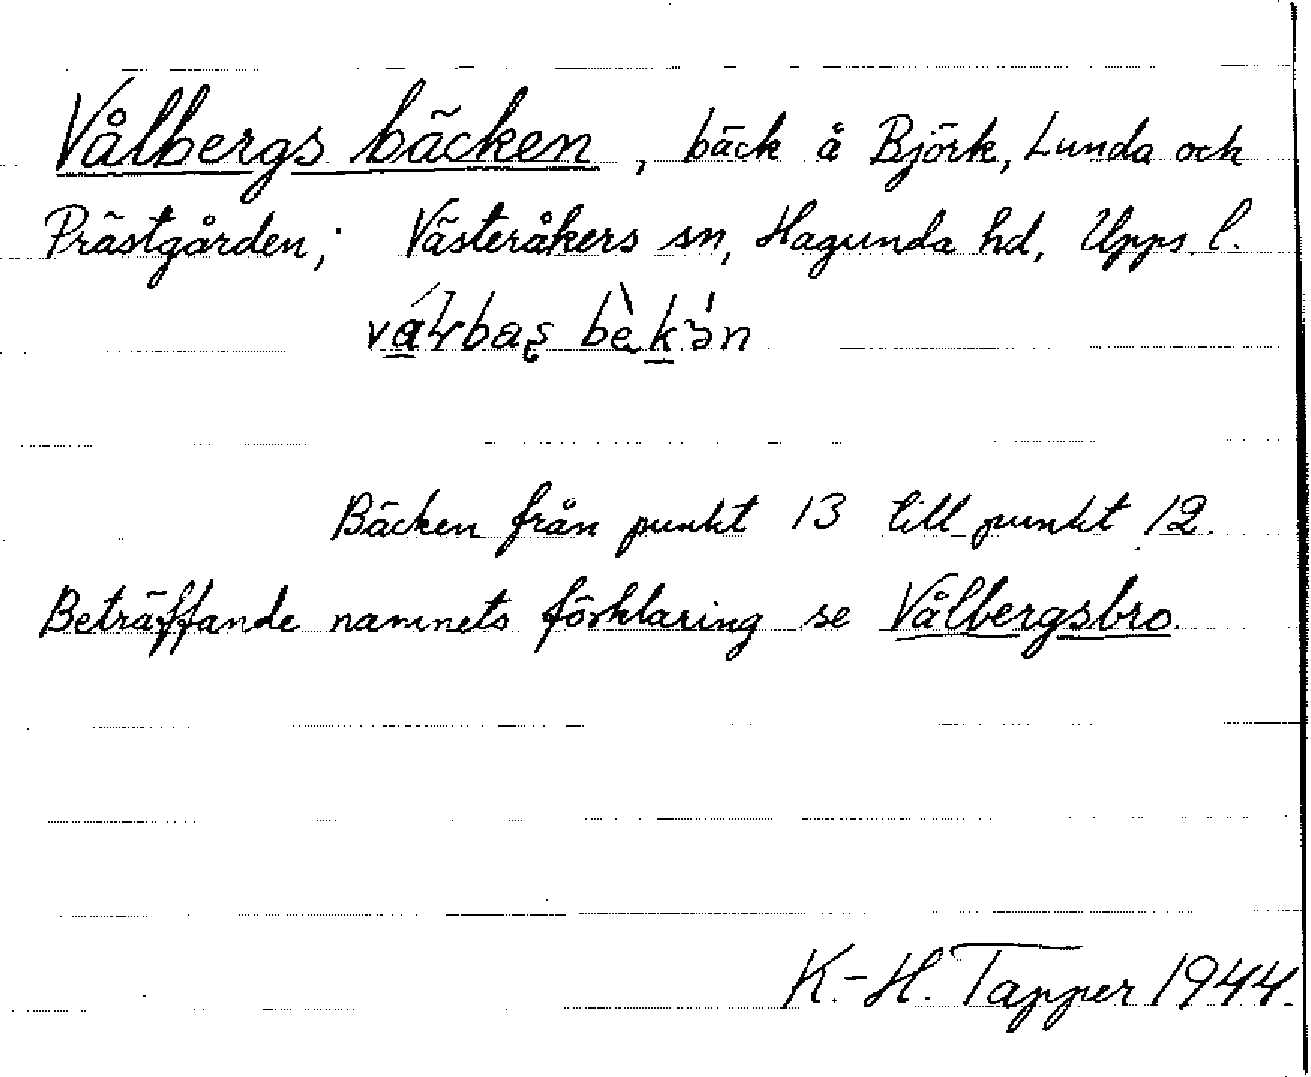 Vålbergs bäcken, bäck å Björk, Lunda och
Prästgården; Västeråkers sn, Hagunda hd, Upps. l.
Bäcken från punkt 13 till punkt 12.
Beträffande namnets förklaring se Vålbergsbro.
K.-H. Tapper 1944.